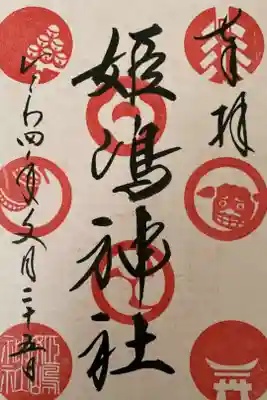 奉拝
姫嶋神社
令和四年文月二十五日
姫嶋神社